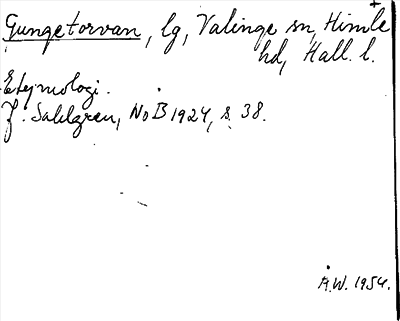 Gungetorvan, lg, Valinge sn, Himle
hd, Hall. l.
Etymologi.
J. Sahlgren, NoB 1924, s. 38.
Å.W. 1954.